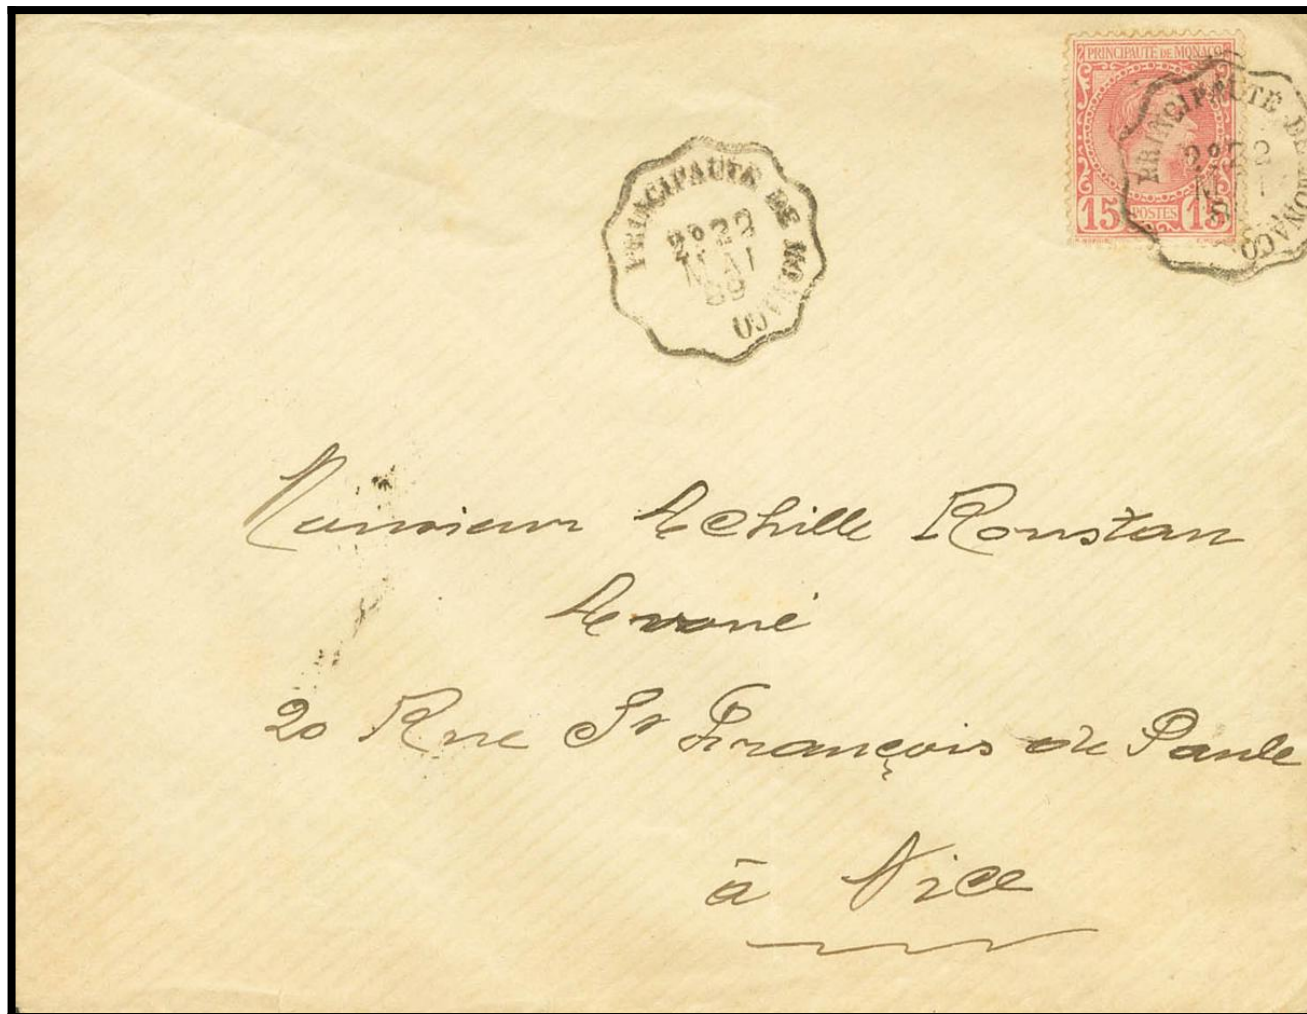 PRINCIPAUTÉ DE MONACO
15 POSTES 15
PRINCIPAUTÉ DE MONACO
2º 22
MAI
PRINCIPAUTÉ DE MONACO
2º 22
MAI
89
Monsieur Achille Roustan
Avoué
20 Rue St François de Paule
à Nice